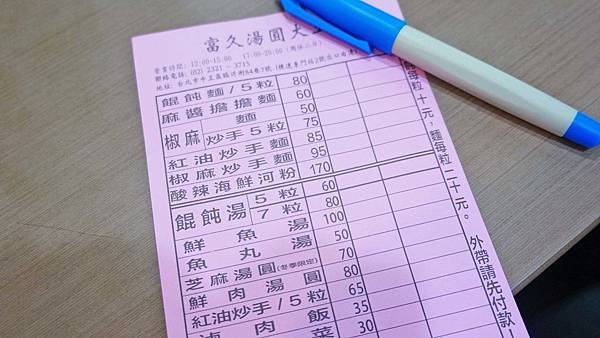 富久湯圓大
營業時間: 12:00-15:00 17:00-20:00 (周休二日)
聯絡電話: (02) 2321-3715
地址: 台北市中正區臨沂街84巷7號 (捷運東門站2號出口
餛飩麵/5粒 80
麻醬擔擔麵 60
椒麻 麵 50
炒手5粒 75
紅油炒手麵 85
椒麻炒手麵 95
酸辣海鮮河粉 170
餛飩湯 5粒 60
7粒 80
鮮魚湯 100
魚丸湯 50
芝麻湯圓(冬季限定) 70
鮮肉湯圓 80
紅油炒手/5粒 65
滷肉飯 35
菜 30
粒十元,麵每粒二十元。 外帶請先付款!